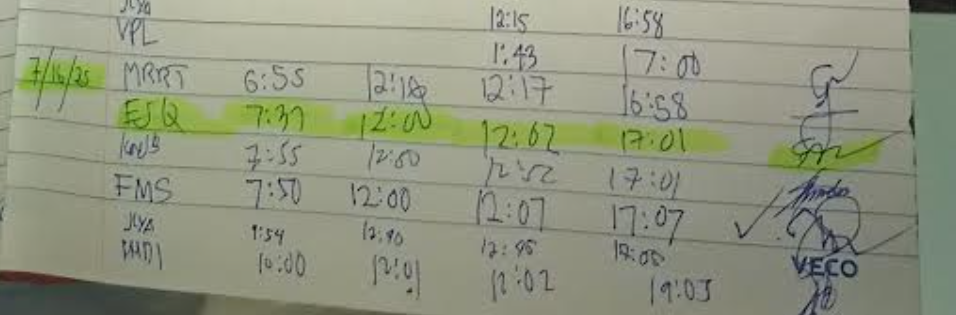 JLYA 12:15 16:58
VPL 1:43 17:00
7/16/25 MRRT 6:55 12:12 12:17 16:58
ESQ 7:37 12:00 12:02 17:01
7:55 12:50 12:52 17:01
FMS 7:50 12:00 12:07 17:07
JLYA 7:54 12:40 12:45 17:00
10:00 12:01 12:02 19:03
VECO